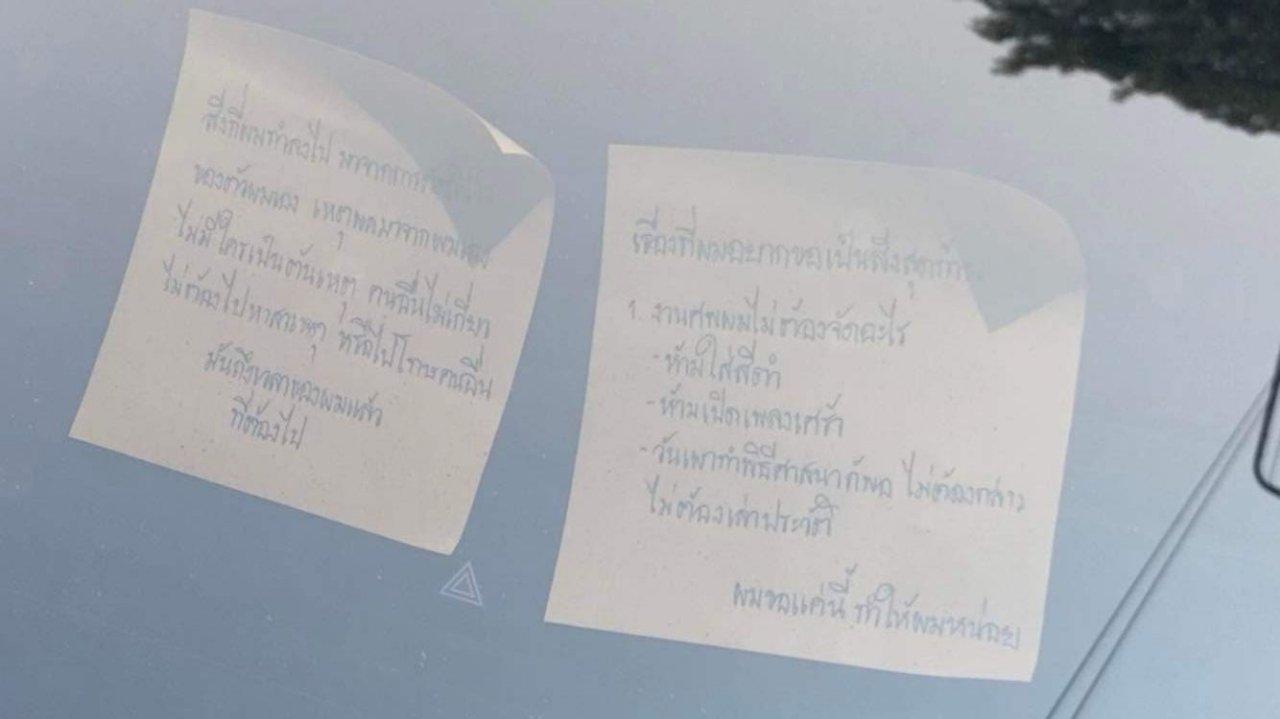 สิ่งที่ผมทำลงไป มาจากการตัดสินใจ
ของตัวผมเอง เหตุผลมาจากผมเอง
ไม่มีใครเป็นต้นเหตุ คนอื่นไม่เกี่ยว
ไม่ต้องไปหาสาเหตุ หรือไปโทษคนอื่น
มันถึงเวลาของผมแล้ว
ที่ต้องไป
เรื่องที่ผมอยากขอเป็นสิ่งสุดท้าย
1. งานศพผมไม่ต้องจัดอะไร
- ห้ามใส่สีดำ
- ห้ามเปิดเพลงเศร้า
- วันเผาทำพิธีศาสนาก็พอ ไม่ต้องกล่าว
ไม่ต้องเล่าประวัติ
ผมขอแค่นี้ ทำให้ผมหน่อย